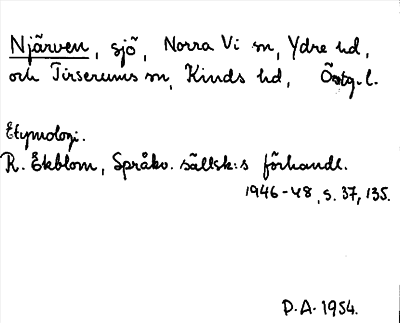 Njärven, sjö, Norra Vi sn, Ydre hd,
och Tirserums sn, Kinds hd, Östg. l.
Etymologi.
R. Ekblom, Språkv. sällsk:s förhandl.
1946-48, s. 37, 135.
D.A. 1954.